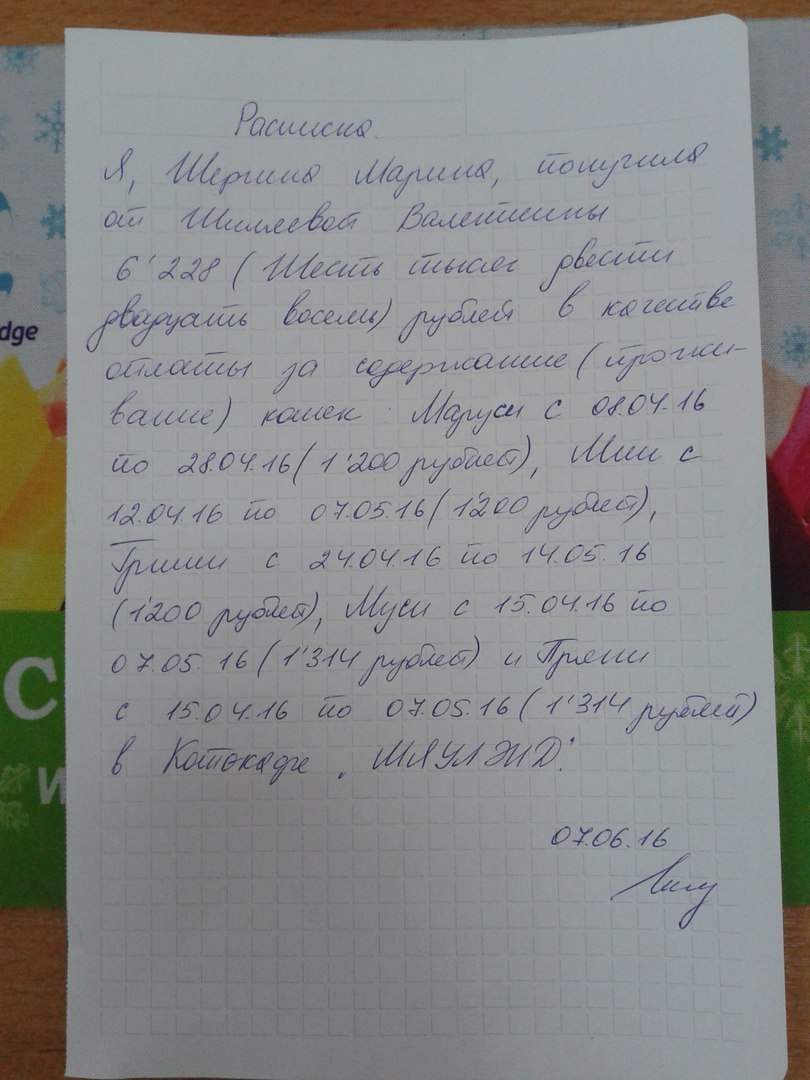 Расписка.
Я, Шергина Марина, получила
от Шиляевой Валентины
6'228 (Шесть тысяч двести
двадцать восемь) рублей в качестве
оплаты за содержание (прожи-
вание) кошек: Маруси с 08.04.16
по 28.04.16 (1'200 рублей), Мии с
12.04.16 по 07.05.16 (1'200 рублей),
Гриши с 24.04.16 по 14.05.16
(1'200 рублей), Муси с 15.04.16 по
07.05.16 (1'314 рублей) и Пряни
с 15.04.16 по 07.05.16 (1'314 рублей)
в Котокафе "МЯУЛЭНД".
07.06.16
dge
С
И